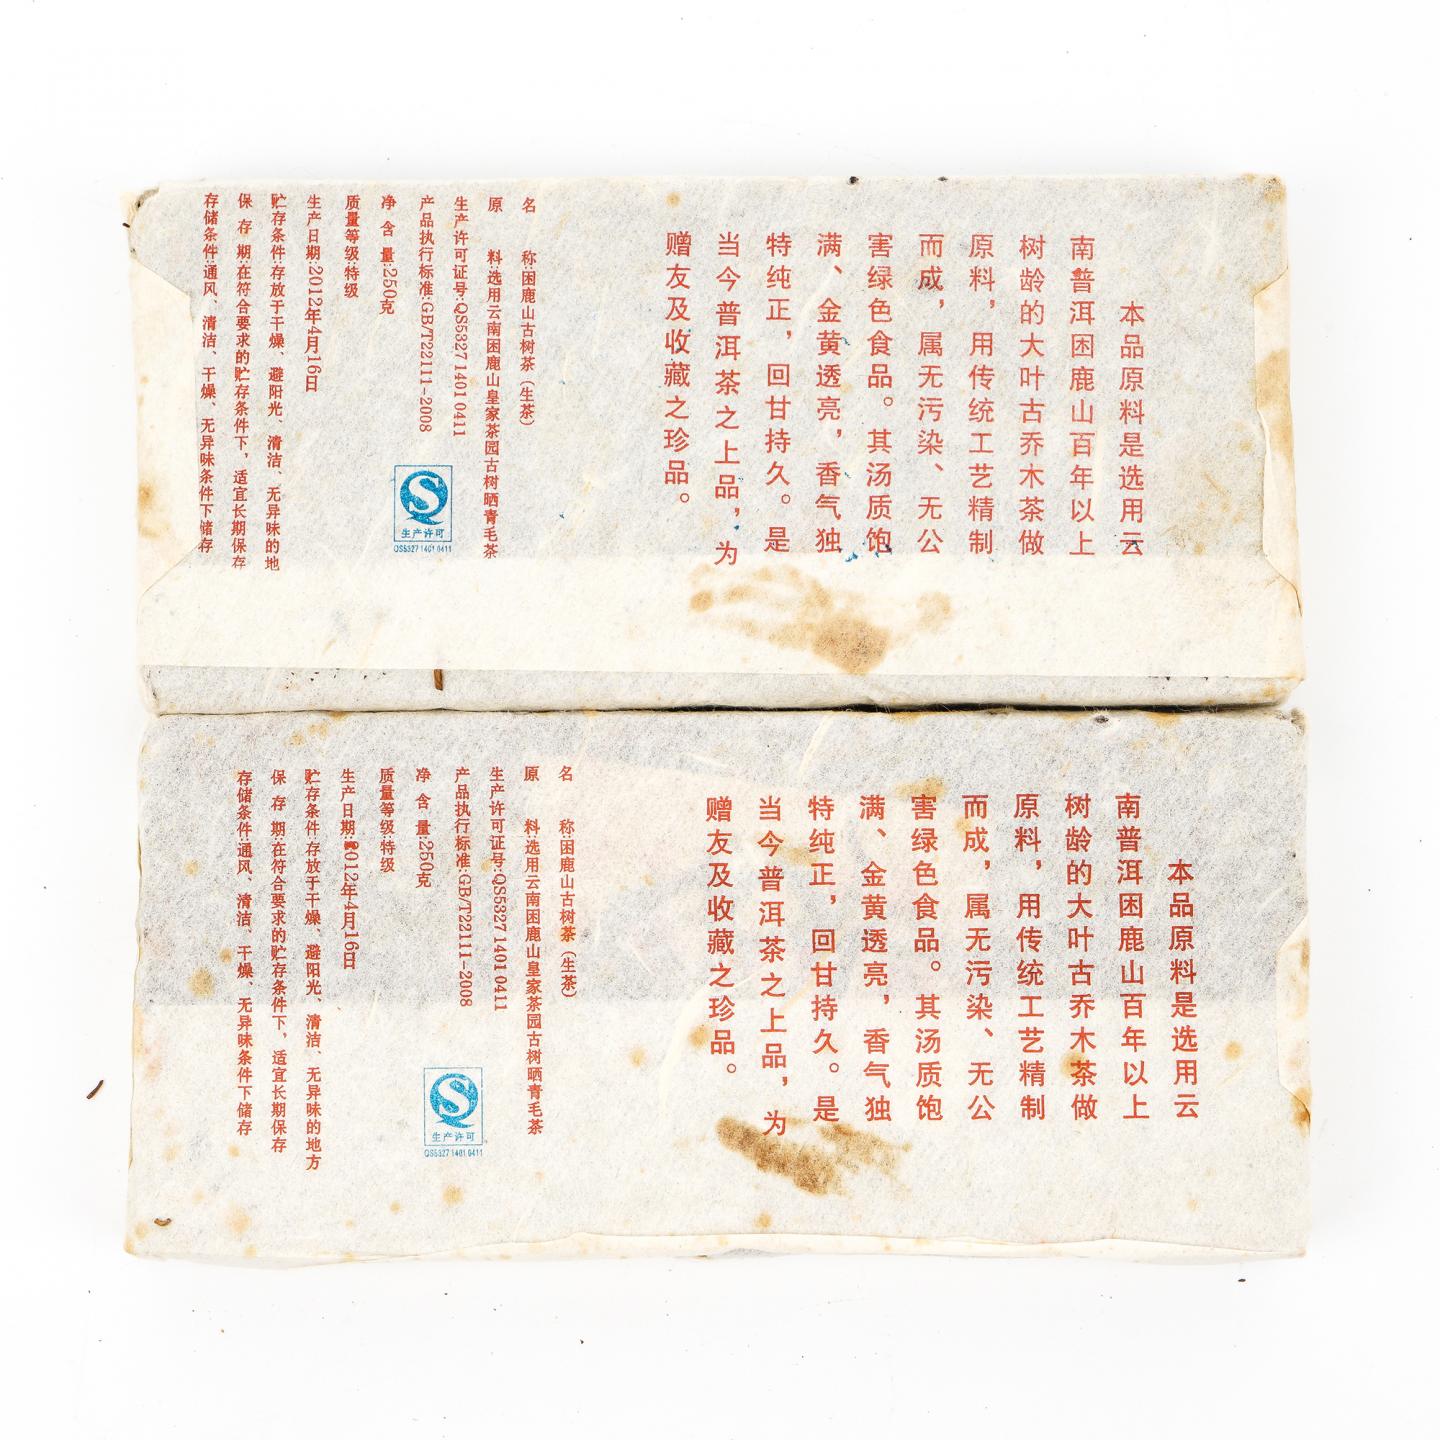 本品原料是选用云
南普洱困鹿山百年以上
树龄的大叶古乔木茶做
原料，用传统工艺精制
而成，属无污染、无公
害绿色食品。其汤质饱
满、金黄透亮，香气独
特纯正，回甘持久。是
当今普洱茶之上品，为
赠友及收藏之珍品。
名 称:困鹿山古树茶（生茶）
原 料:选用云南困鹿山皇家茶园古树晒青毛茶
生产许可证号:QS5327 1401 0411
产品执行标准:GB/T22111-2008
净 含 量:250克
质量等级:特级
生产日期:2012年4月16日
贮存条件:存放于干燥、避阳光、清洁、无异味的地
保 存 期:在符合要求的贮存条件下，适宜长期保存
存储条件:通风、清洁、干燥、无异味条件下储存
生产许可
QS5327 1401 0411
本品原料是选用云
南普洱困鹿山百年以上
树龄的大叶古乔木茶做
原料，用传统工艺精制
而成，属无污染、无公
害绿色食品。其汤质饱
满、金黄透亮，香气独
特纯正，回甘持久。是
当今普洱茶之上品，为
赠友及收藏之珍品。
名 称:困鹿山古树茶（生茶）
原 料:选用云南困鹿山皇家茶园古树晒青毛茶
生产许可证号:QS5327 1401 0411
产品执行标准:GB/T22111-2008
净 含 量:250克
质量等级:特级
生产日期:2012年4月16日
贮存条件:存放于干燥、避阳光、清洁、无异味的地方
保 存 期:在符合要求的贮存条件下，适宜长期保存
存储条件:通风、清洁、干燥、无异味条件下储存
生产许可
QS5327 1401 0411